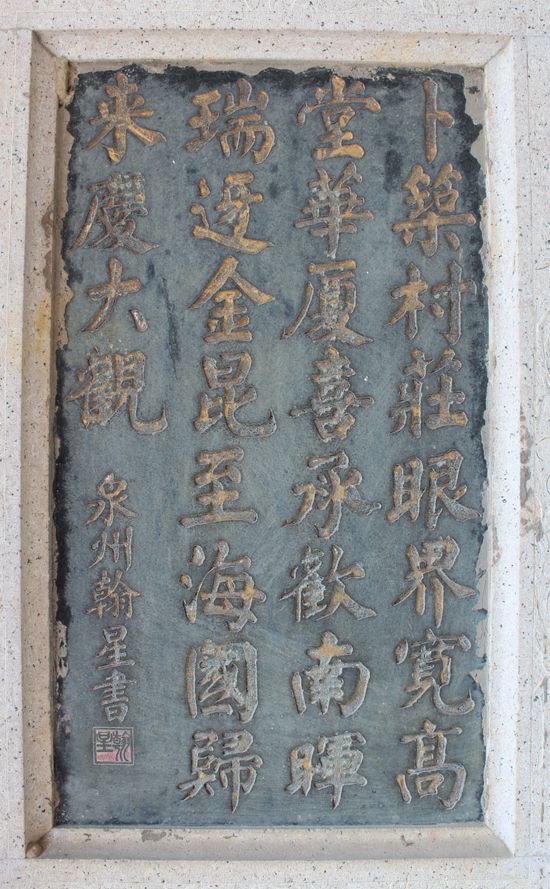 卜築村莊眼界寬高
堂華厦喜承歡南暉
瑞迓金昆至海國歸
来慶大觀
泉州翰星書